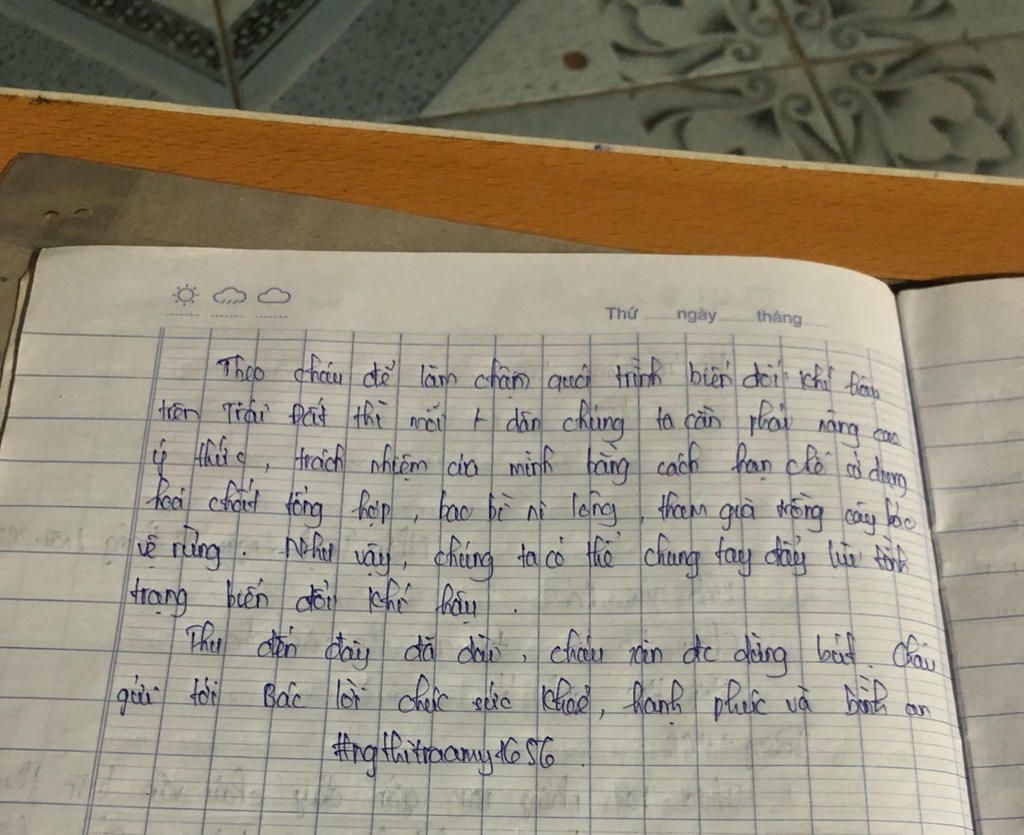 Thứ ngày tháng
Theo cháu để làm chậm quá trình biến đổi khí hậu
trên Trái Đất thì mỗi + dân chúng ta cần phải nâng cao
ý thức, trách nhiệm của mình bằng cách hạn chế sử dụng
hoá chất tổng hợp, bao bì ni lông, tham gia trồng cây bảo
vệ rừng. Như vậy, chúng ta có thể chung tay đẩy lùi tình
trạng biến đổi khí hậu.
Thư đến đây đã dài, cháu xin đc dừng bút. Cháu
gửi tới Bác lời chúc sức khoẻ, hạnh phúc và bình an
#ngthitraamy1656